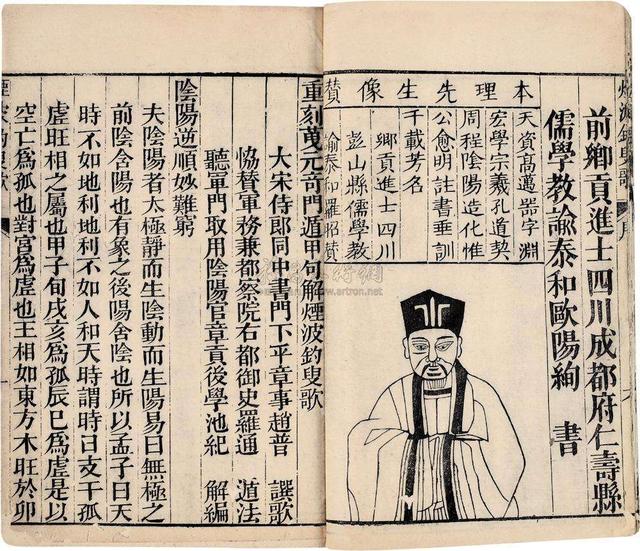 前鄉貢進士四川成都府仁壽縣
儒學教諭泰和歐陽絢 書
本理先生像賛
天資高邁器字淵
宏學宗羲孔道契
周程陰陽造化惟
公愈明註書垂訓
千載芳名
鄉貢進士四川
彭山縣儒學教
諭泰和羅昭賛
重刻元奇門遁甲句解煙波釣叟歌
大宋侍郎同中書門下平章事趙普 譔歌
協賛軍務兼都察院右都御史羅通 遁法
聽軍門取用陰陽官章貢後學池紀 解編
陰陽逆順妙難窮
夫陰陽者太極靜而生陰動而生陽易曰無極之
前陰含陽也有象之後陽含陰也所以孟子曰天
時不如地利地利不如人和天時謂時日支干孤
虛旺相之屬也甲子旬戌亥爲孤辰巳爲虛是以
空亡爲孤也對宮爲虛也王相如東方木旺於卯
www.artron.net